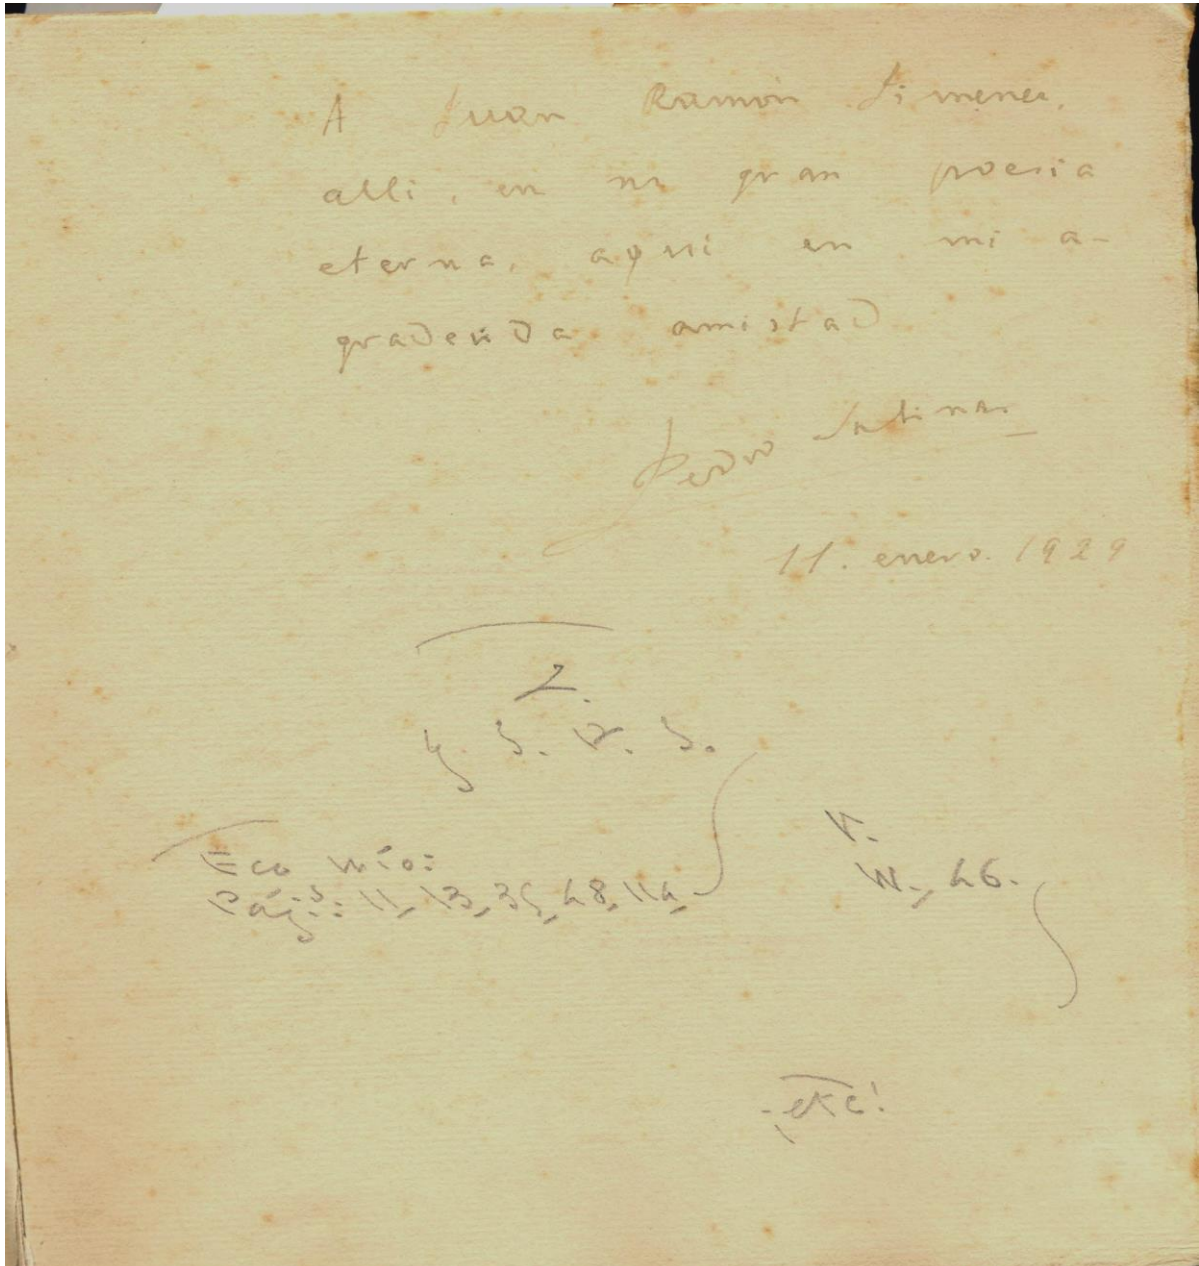 A Juan Ramón Jimenez,
alli, en su gran poesia
eterna, aqui en mi a-
gradecida amistad
Pedro Salinas
11. enero. 1929
2.
Eco mío:
Págs: 11, 13, 35, 48, 114,
V.
46.
¡etc!